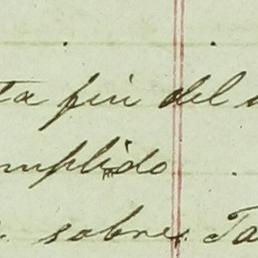 fin del
mplido
sobre Ta